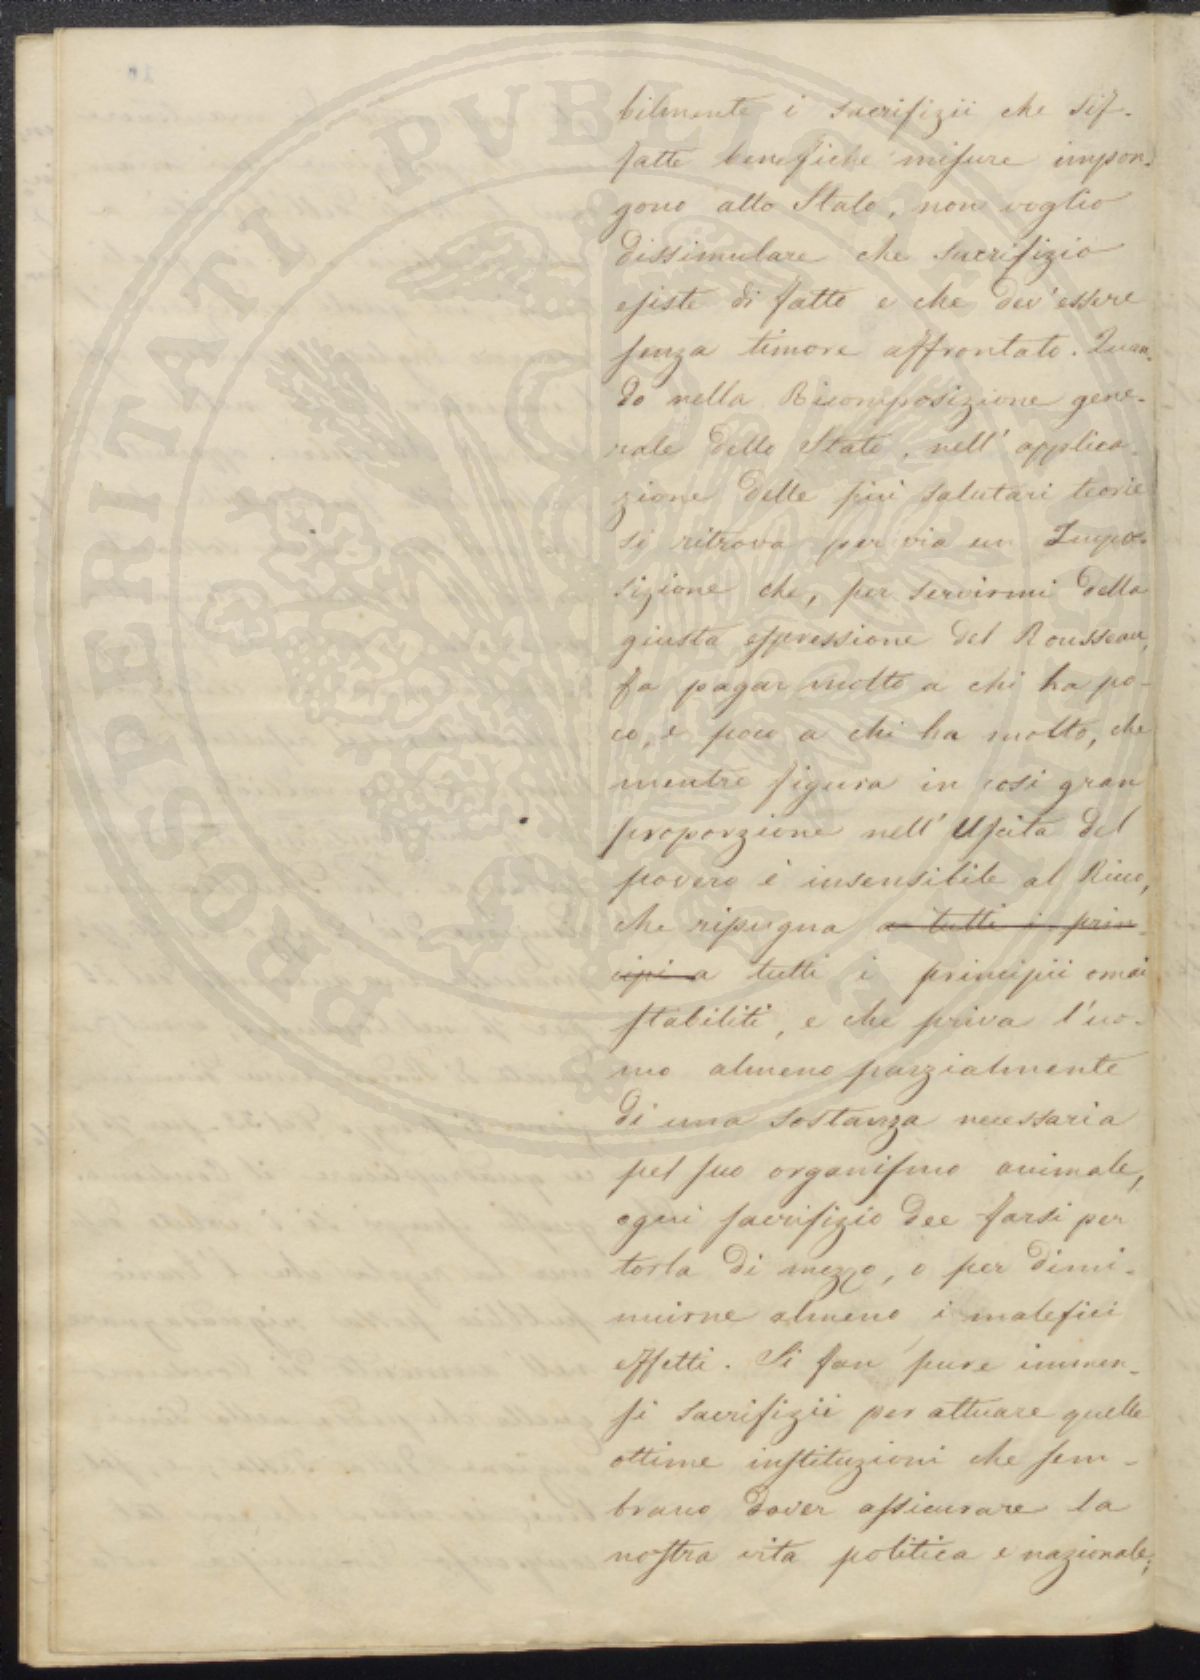 bilmente i sacrifizii che sif-
fatte benefiche misure impon-
gono allo Stato, non voglio
dissimulare che sacrifizio
esiste di fatto e che dev'essere
senza timore affrontato. Quan-
do nella Ricomposizione gene-
rale dello Stato, nell'applica-
zione delle più salutari teorie
si ritrova per via un Impo-
sizione che, per servirmi della
giusta espressione del Rousseau,
fa pagar molto a chi ha po-
co, e poco a chi ha molto, che
mentre figura in così gran
proporzione nell'Uscita del
povero è insensibile al Ricco,
che ripugna a tutti i prin-
cipi a tutti i principii omai
stabiliti, e che priva l'uo-
mo almeno parzialmente
di una sostanza necessaria
pel suo organismo animale,
ogni sacrifizio dee farsi per
torla di mezzo, o per dimi-
nuirne almeno i malefici
effetti. Si fan pure immen-
si sacrifizii per attuare quelle
ottime instituzioni che sem-
brano dover assicurare la
nostra vita politica e nazionale;
PROSPERITATI PUBLICAE